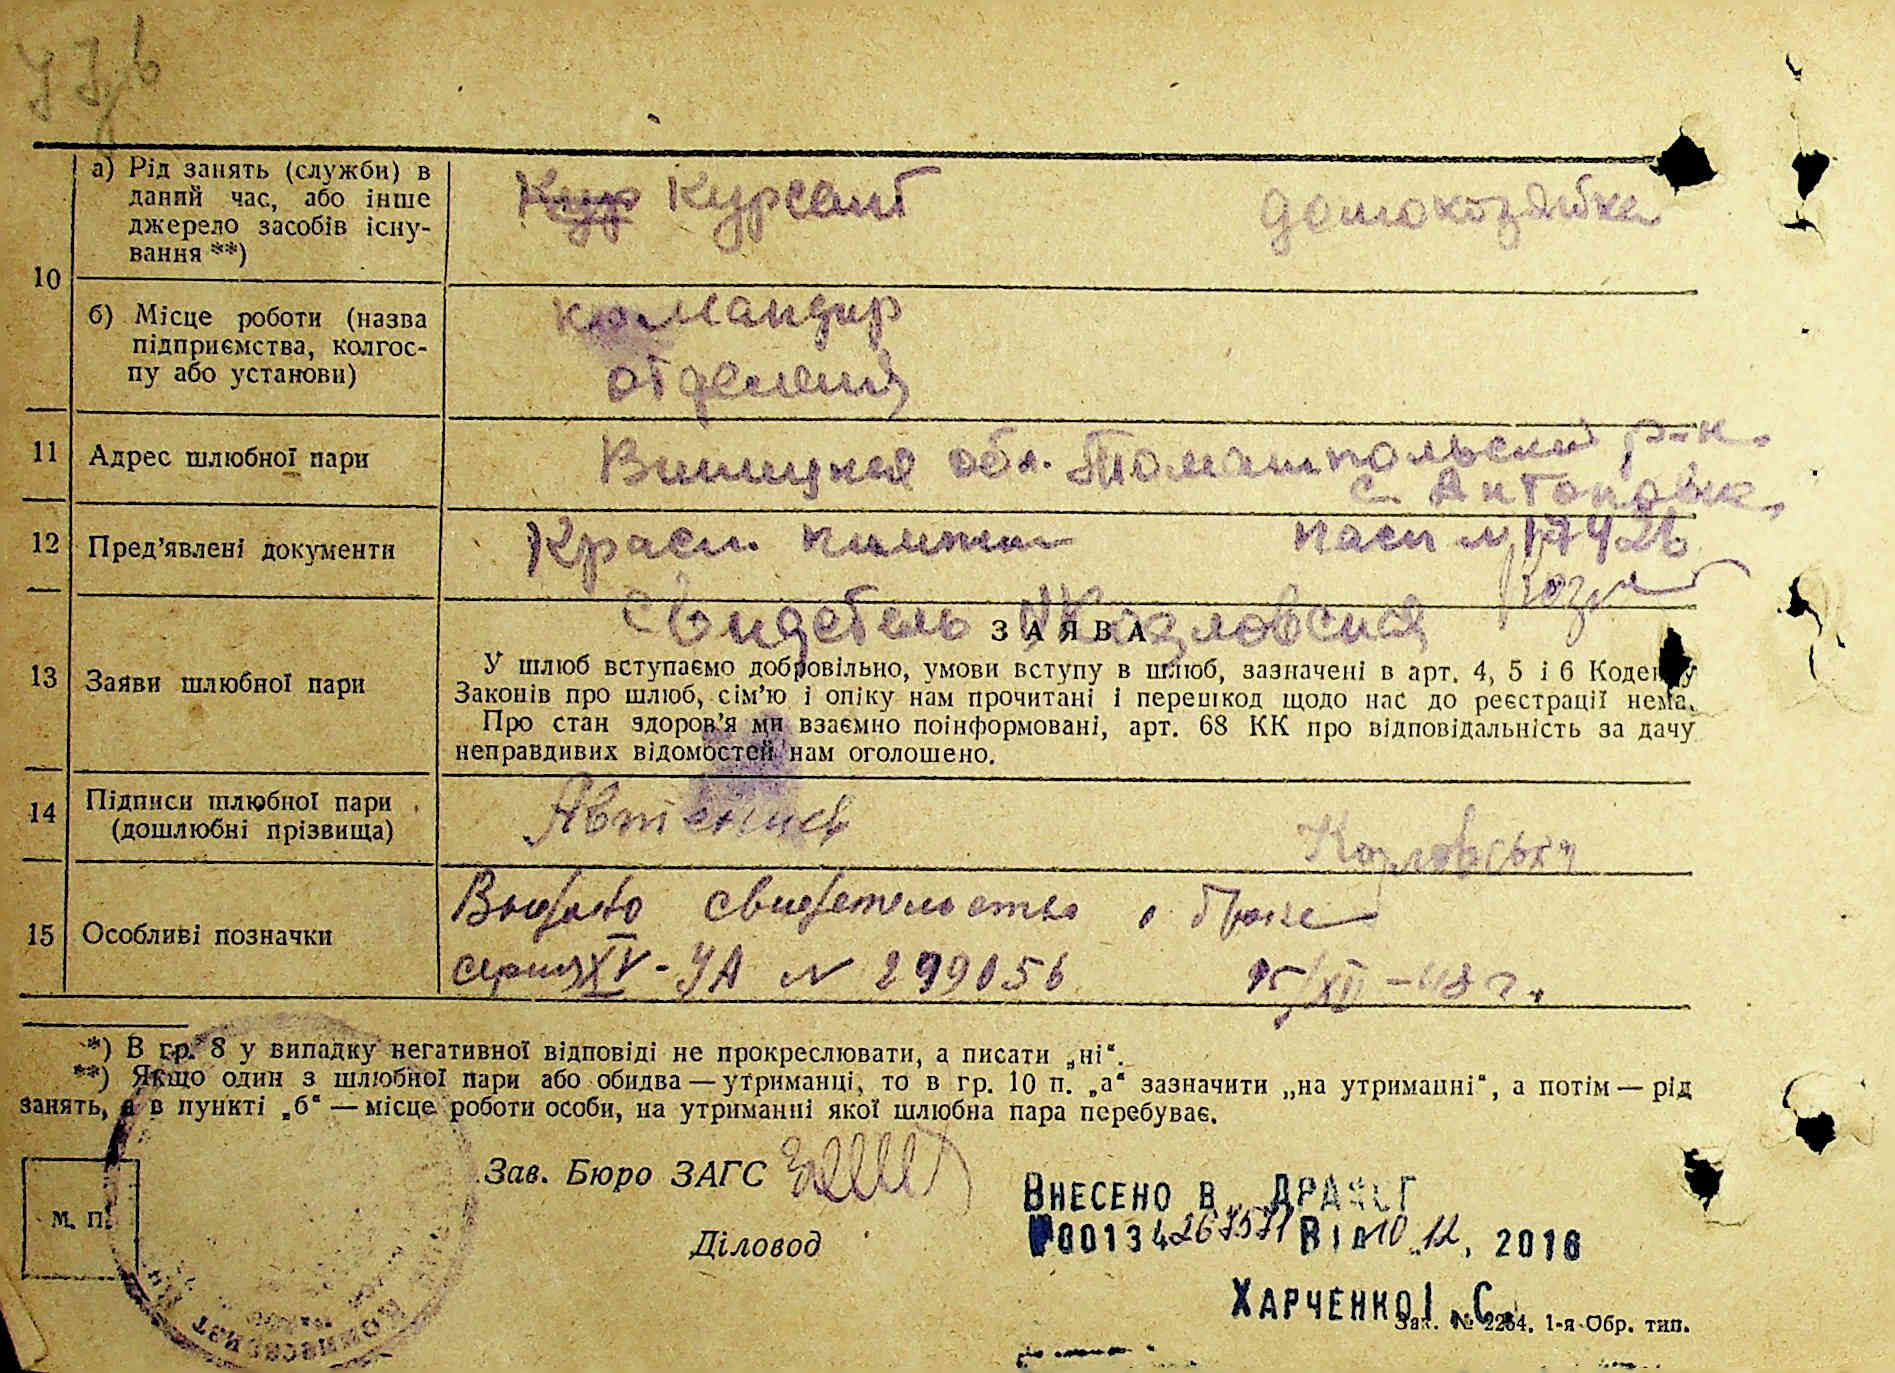 а) Рід занять (служби) в
даний час, або інше
джерело засобів існу-
вання **)
Кур Курсант
домохозяйка
10
б) Місце роботи (назва
підприємства, колгос-
пу або установи)
командир
отделения
11
Адрес шлюбної пари
Виницкая обл. Томашпольский р-н.
с. Антоновка,
12
Пред’явлені документи
Красн. книжка
пасп №
Свидетель
13
Заяви шлюбної пари
ЗАЯВА
У шлюб вступаємо добровільно, умови вступу в шлюб, зазначені в арт. 4, 5 і 6 Кодексу
Законів про шлюб, сім’ю і опіку нам прочитані і перешкод щодо нас до реєстрації нема.
Про стан здоров’я ми взаємно поінформовані, арт. 68 КК про відповідальність за дачу
неправдивих відомостей нам оголошено.
14
Підписи шлюбної пари
(дошлюбні прізвища)
Козловська
15
Особливі позначки
Выдано свидетельство о браке
серия XV-УА № 299056 15/XII-48 г.
*) В гр. 8 у випадку негативної відповіді не прокреслювати, а писати „ні“.
**) Якщо один з шлюбної пари або обидва — утриманці, то в гр. 10 п. „а“ зазначити „на утриманні“, а потім — рід
занять, а в пункті „б“ — місце роботи особи, на утриманні якої шлюбна пара перебуває.
М. П.
Зав. Бюро ЗАГС
Діловод
ВНЕСЕНО В ДРАЦСГ
№00134267571 ВІД 10.12. 2016
ХАРЧЕНКО І. С.
Зак. № 2264. 1-я Обр. тип.